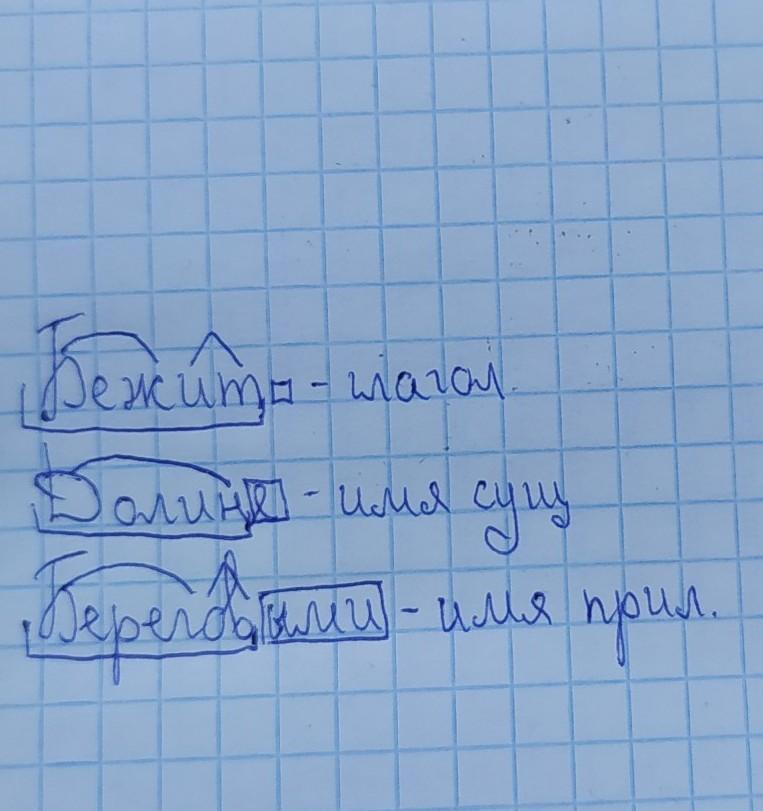 Бежит - глагол.
Долине - имя сущ
Береговыми - имя прил.